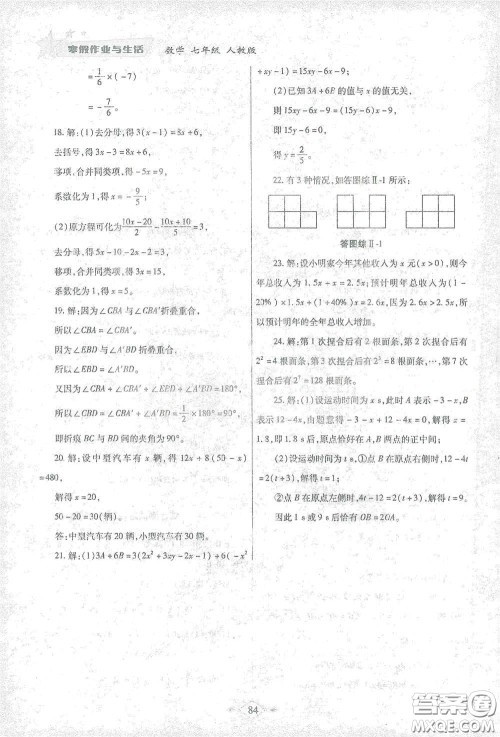 寒假作业与生活 数学 七年级 人教版
=1/6×(-7)
=-7/6.
18. 解:(1)去分母,得3(x-1)=8x+6,
去括号,得3x-3=8x+6,
移项,合并同类项,得-5x=9,
系数化为1,得x=-9/5;
(2)原方程可化为(10x-20)/2-(10x+10)/5=3,
去分母,得5x-10-2x-2=3,
移项,合并同类项,得3x=15,
系数化为1,得x=5.
19. 解:因为∠CBA与∠CBA′折叠重合,
所以∠CBA=∠CBA′.
因为∠EBD与∠A′BD折叠重合,
所以∠EBD=∠A′BD.
又因为∠CBA+∠CBA′+∠EBD+∠A′BD=180°,
所以∠CBA′+∠A′BD=1/2×180°=90°.
即折痕BC与BD间的夹角为90°.
20. 解:设中型汽车有x辆,得12x+8(50-x)
=480,
解得x=20,
50-20=30(辆).
答:中型汽车有20辆,小型汽车有30辆.
21. 解:(1)3A+6B=3(2x²+3xy-2x-1)+6(-x²
+xy-1)=15xy-6x-9;
(2)已知3A+6B的值与x的值无关,
则15xy-6x-9=(15y-6)x-9,
即15y-6=0,
得y=2/5.
22. 有3种情况,如答图综Ⅱ-1所示:
答图综Ⅱ-1
23. 解:设小明家今年其他收入为x元(x>0),则今年
总收入为1.5x+x=2.5x;预计明年总收入为(1-
20%)×1.5x+(1+40%)x=2.6x.因为2.6x>2.5x,所
以预计明年的全年总收入增加.
24. 解:第1次捏合后有2根面条,第2次捏合后有
2²=4根面条,第3次捏合后有2³=8根面条,…,第7次
捏合后有2⁷=128根面条.
25. 解:(1)设运动时间为t s,此时A表示-3-x,B
表示12-4x,由题意得-3-x+12-4x=0,解得x=
1.8,即1.8 s后,原点恰好在A、B两点的正中间;
(2)设运动时间为t s,①点B在原点右侧时,12-4t
=2(t+3),解得t=1;
②点B在原点左侧时,4t-12=2(t+3),解得t=9.
因此1 s或9 s后恰有OB=2OA.
84
答案圈
MXQE.COM